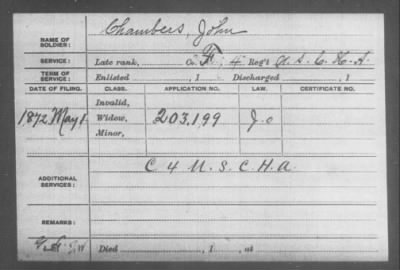 NAME OF SOLDIER: Chambers, John
SERVICE: Late rank, Co. F, 4 Reg't U. S. C. H. A.
TERM OF SERVICE: Enlisted , 1 Discharged , 1
DATE OF FILING. CLASS. APPLICATION NO. LAW. CERTIFICATE NO.
Invalid,
1872 May 8 Widow, 203.199
Minor,
ADDITIONAL SERVICES: C 4 U. S. C. H. A.
REMARKS:
Died , 1 , at